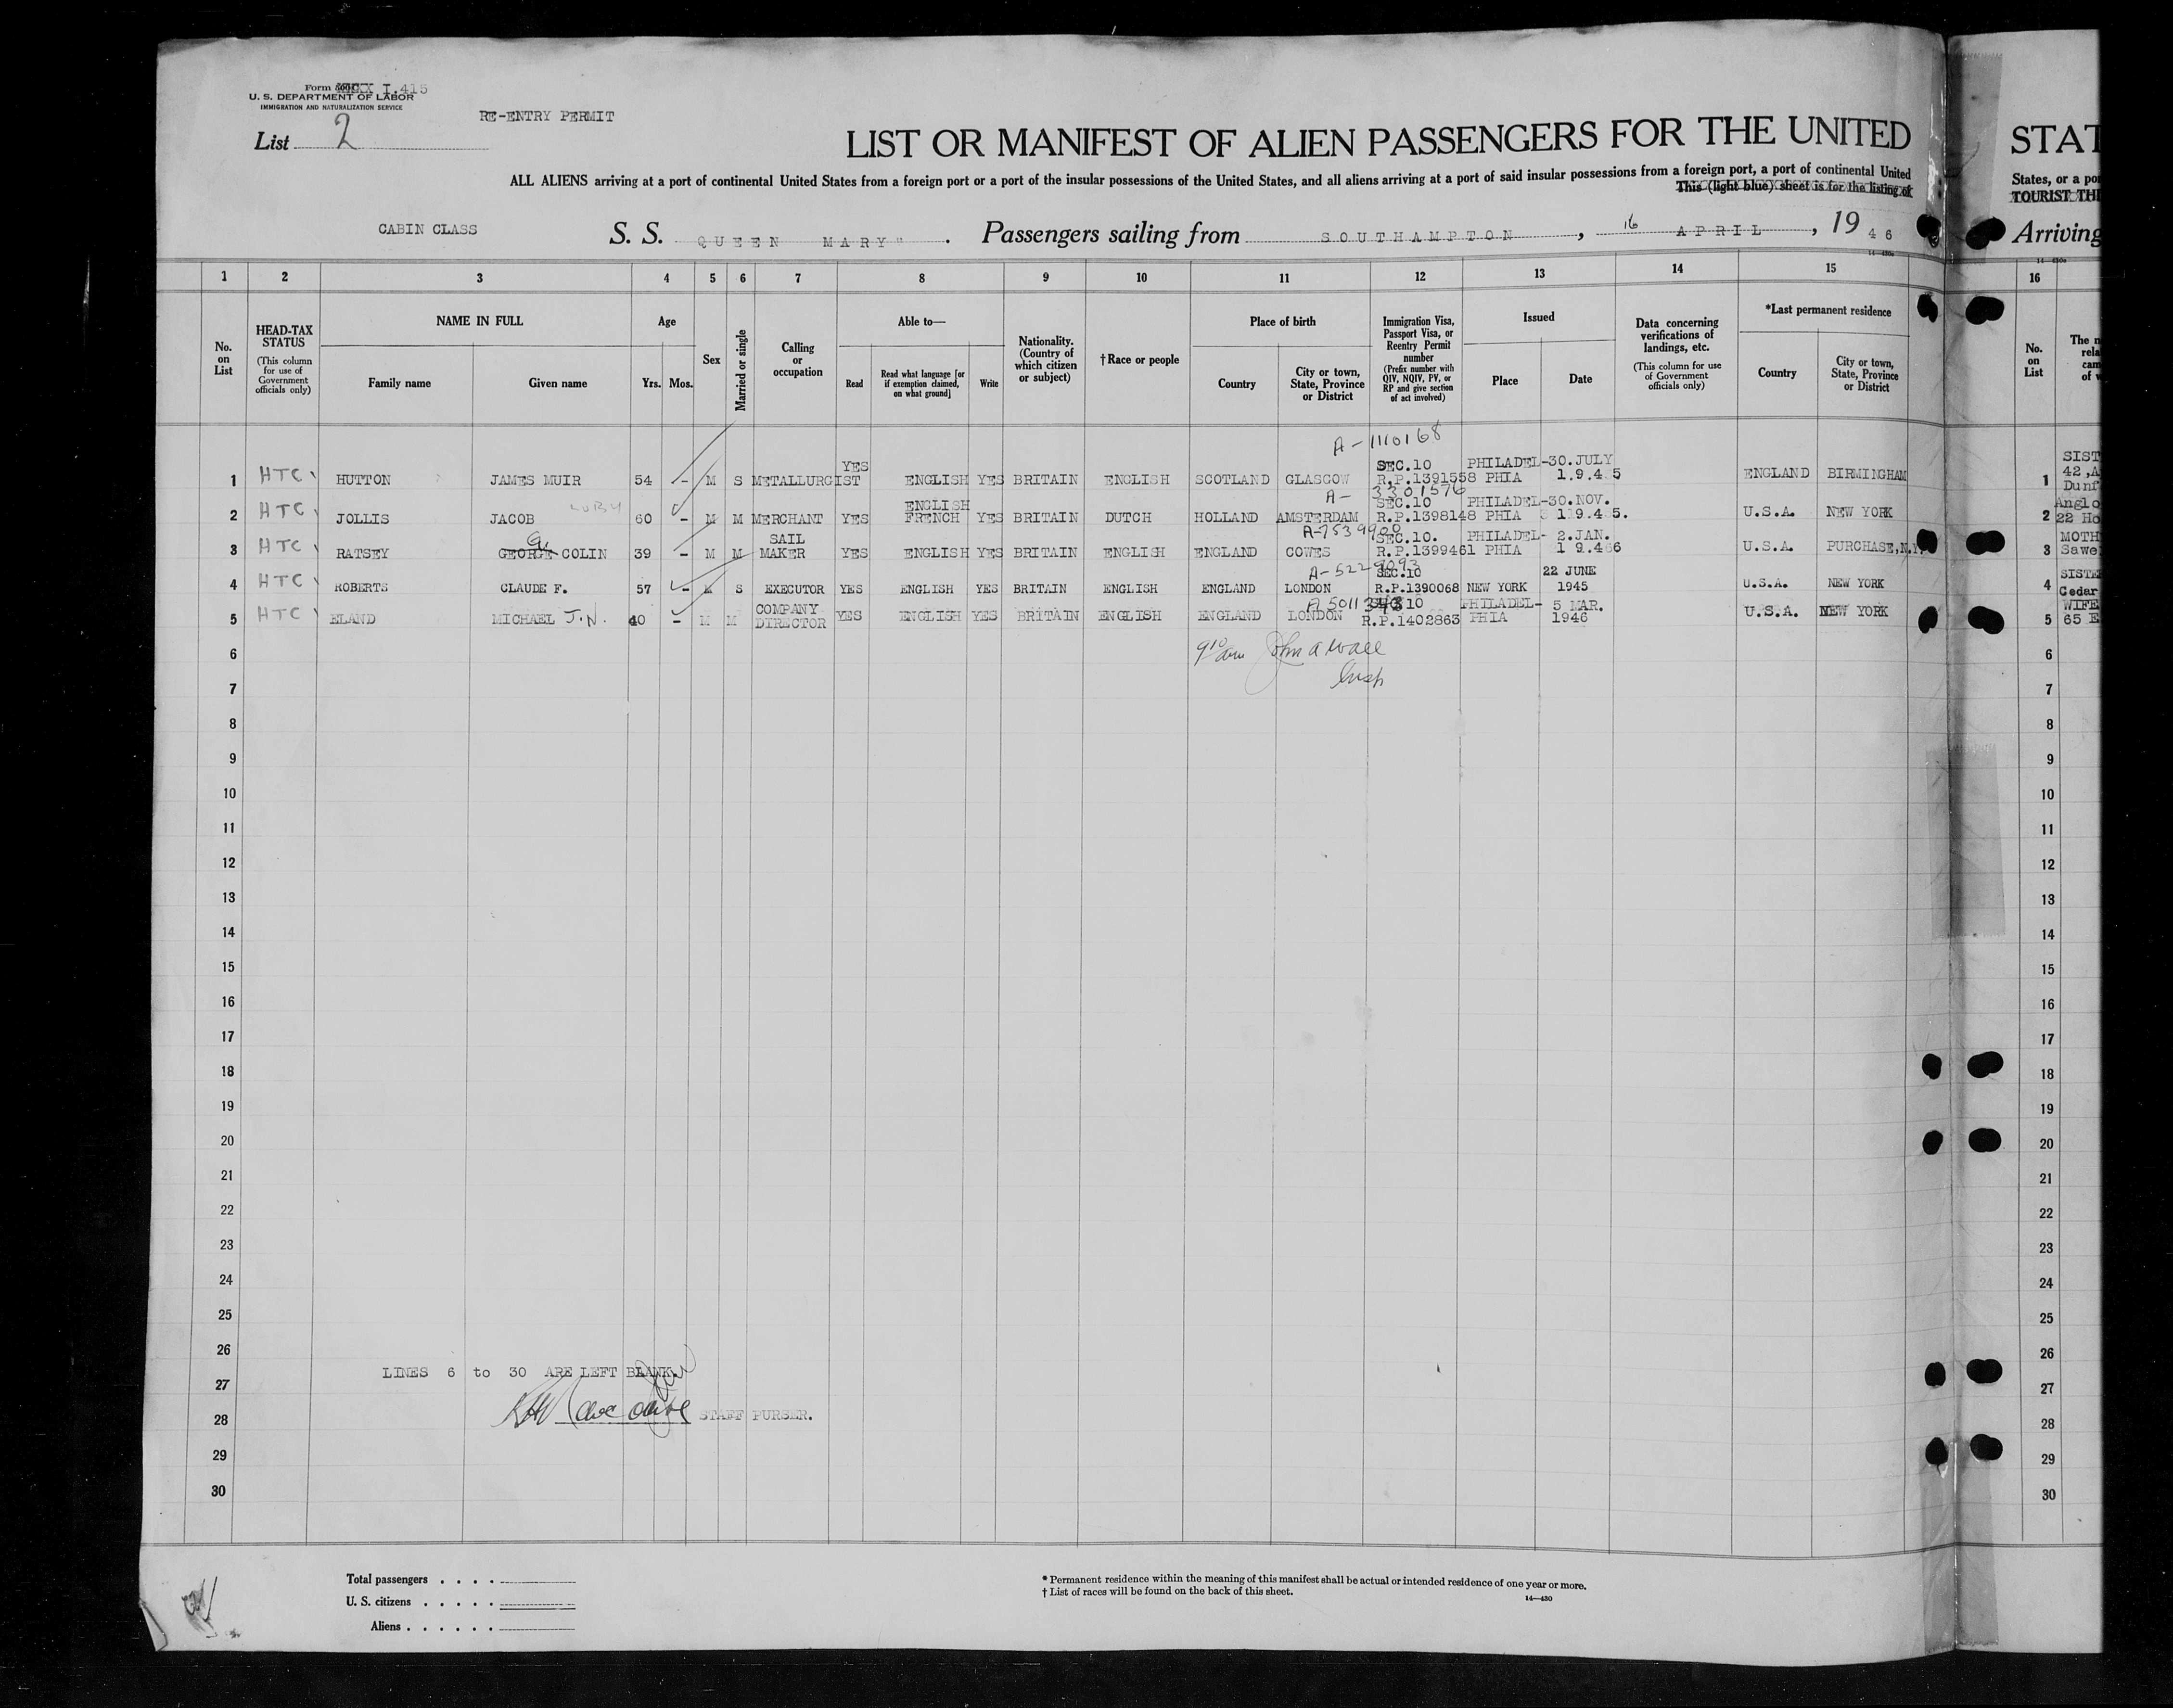 Form I.415
U. S. DEPARTMENT OF LABOR
IMMIGRATION AND NATURALIZATION SERVICE
RE-ENTRY PERMIT
List 2
LIST OR MANIFEST OF ALIEN PASSENGERS FOR THE UNITED
STAT
ALL ALIENS arriving at a port of continental United States from a foreign port or a port of the insular possessions of the United States, and all aliens arriving at a port of said insular possessions from a foreign port, a port of continental United
States, or a po
This (light blue) sheet is for the listing of
TOURIST THI
CABIN CLASS S. S. QUEEN MARY" . Passengers sailing from SOUTHAMPTON , 16 APRIL , 19 46
Arriving
1 2 3 4 5 6 7 8 9 10 11 12 13 14 15 16
No. on List
HEAD-TAX STATUS
(This column for use of Government officials only)
NAME IN FULL
Family name Given name
Age
Yrs. Mos.
Sex
Married or single
Calling or occupation
Able to—
Read
Read what language [or if exemption claimed, on what ground]
Write
Nationality. (Country of which citizen or subject)
†Race or people
Place of birth
Country
City or town, State, Province or District
Immigration Visa, Passport Visa, or Reentry Permit number
(Prefix number with QIV, NQIV, PV, or RP and give section of act involved)
Issued
Place Date
Data concerning verifications of landings, etc.
(This column for use of Government officials only)
*Last permanent residence
Country
City or town, State, Province or District
No. on List
The n
rela
cam
of w
A-1110168
1 HTC HUTTON JAMES MUIR 54 - M S METALLURGIST YES ENGLISH YES BRITAIN ENGLISH SCOTLAND GLASCOW SEC.10 R.P.1391558 PHILADEL-PHIA 30.JULY 1.9.45 ENGLAND BIRMINGHAM 1 SIST 42,A Dunf
A-3301576
2 HTC JOLLIS JACOB 60 - M M MERCHANT YES ENGLISH FRENCH YES BRITAIN DUTCH HOLLAND AMSTERDAM SEC.10 R.P.1398148 PHILADEL-PHIA 30.NOV. 19.45. U.S.A. NEW YORK 2 Anglo 22 Ho
A-7539900
3 HTC RATSEY GEORGE G. COLIN 39 - M M SAIL MAKER YES ENGLISH YES BRITAIN ENGLISH ENGLAND COWES SEC.10. R.P.1399461 PHILADEL-PHIA 2.JAN. 19.46 U.S.A. PURCHASE,N.Y. 3 MOTH Sawe
A-5229093
4 HTC ROBERTS CLAUDE F. 57 - M S EXECUTOR YES ENGLISH YES BRITAIN ENGLISH ENGLAND LONDON SEC.10 R.P.1390068 NEW YORK 22 JUNE 1945 U.S.A. NEW YORK 4 SISTE Cedar
5 HTC ELAND MICHAEL J.N. 40 - M M COMPANY DIRECTOR YES ENGLISH YES BRITAIN ENGLISH ENGLAND LONDON R.P.1402863 PHILADEL-PHIA 5 MAR. 1946 U.S.A. NEW YORK 5 WIFE 65 E
6 9 10 am John A Wall 6
7 Insp 7
8 8
9 9
10 10
11 11
12 12
13 13
14 14
15 15
16 16
17 17
18 18
19 19
20 20
21 21
22 22
23 23
24 24
25 25
26 26
LINES 6 to 30 ARE LEFT BLANK.
27 27
28 STAFF PURSER. 28
29 29
30 30
Total passengers . . . .
U. S. citizens . . . . .
Aliens . . . . . .
* Permanent residence within the meaning of this manifest shall be actual or intended residence of one year or more.
† List of races will be found on the back of this sheet.
14—430